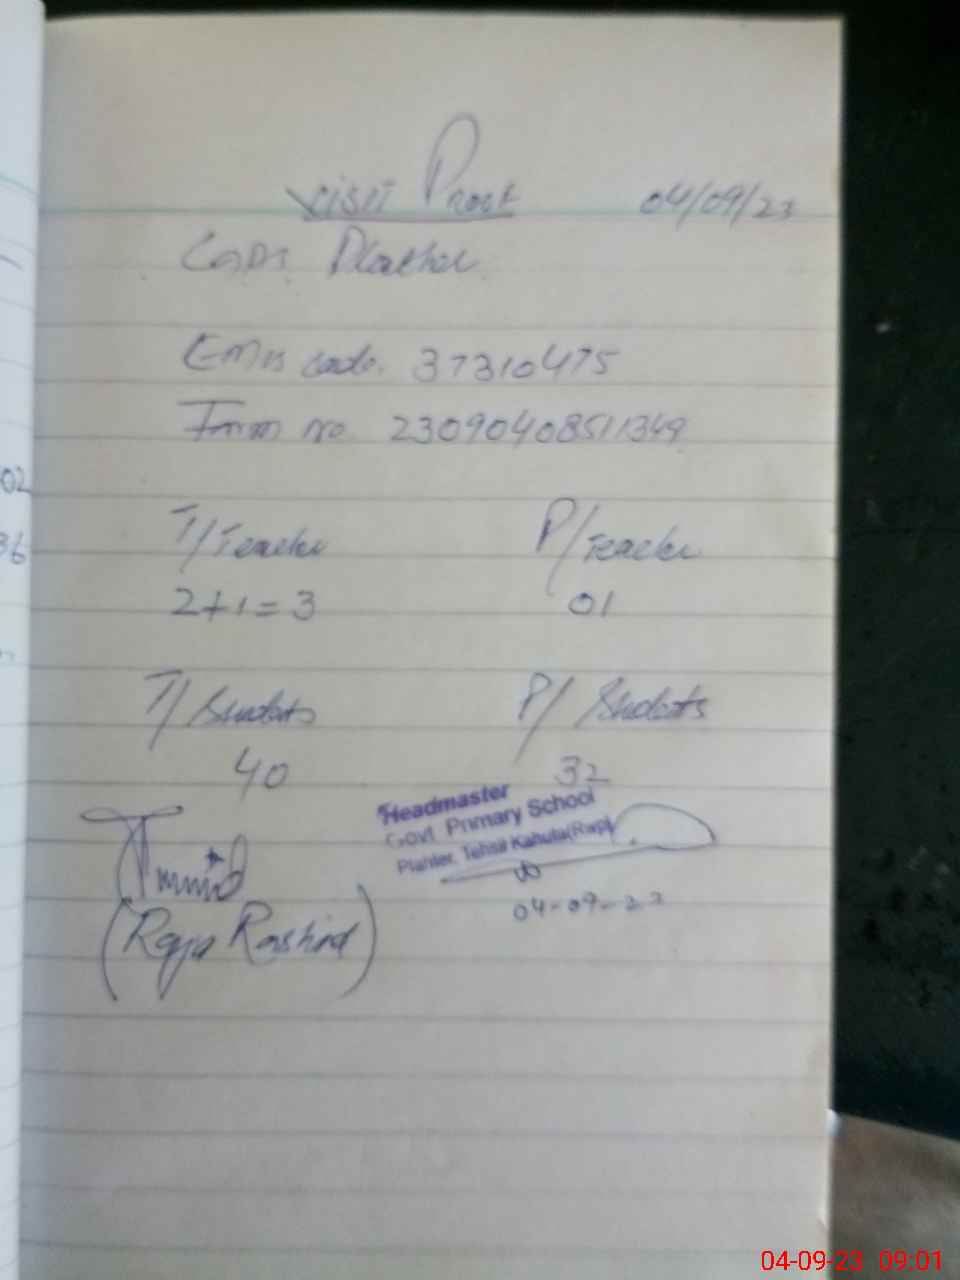 Visit Proof 04/09/23
GGPS. Plather
Emis code. 37310475
Form no. 23090408511349
T/Teacher P/Teacher
2+1=3 01
T/Students P/Students
40 32
Headmaster
Govt. Primary School
Plahter, Tehsil Kahuta(Rwp)
04-09-23
(Raja Rashid)
02
36
04-09-23 09:01